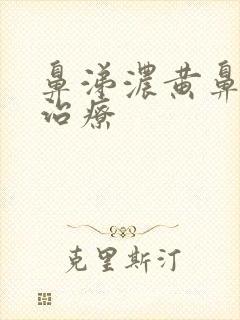 鼻涕濃黄鼻
治療
克里斯汀